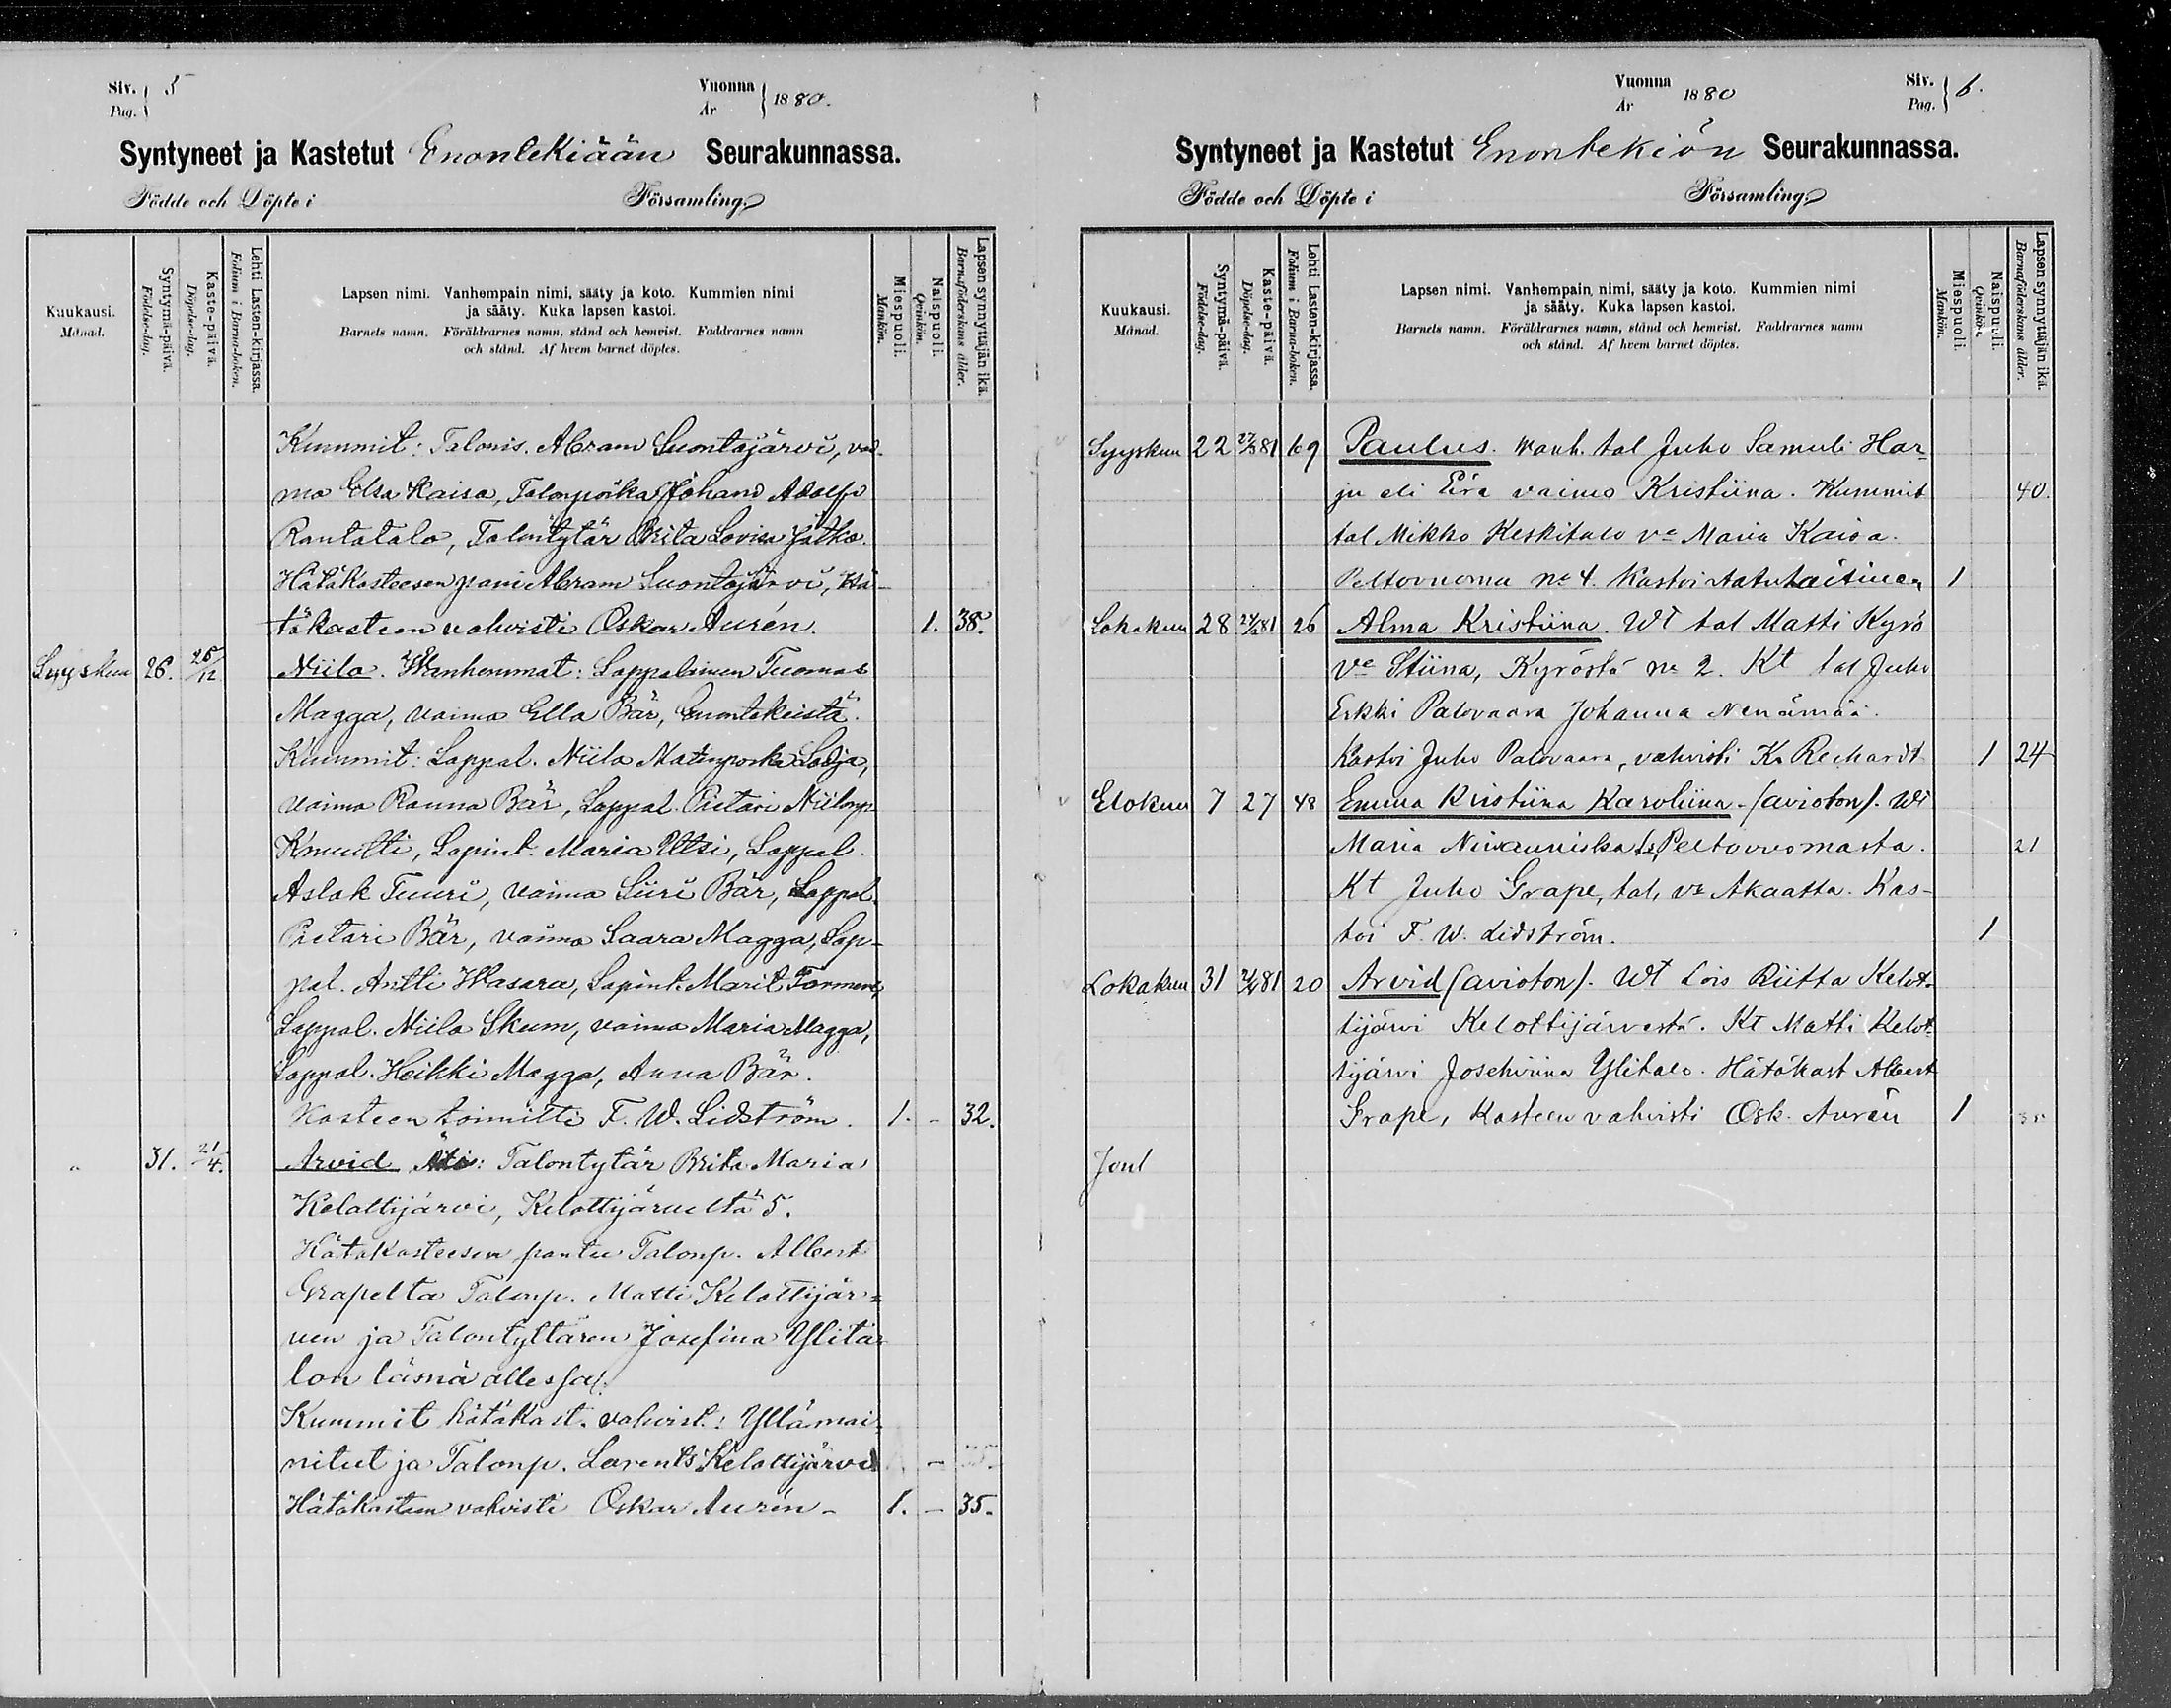 Siv. 5
Pag.
Vuonna 1880.
År
Syntyneet ja Kastetut Enontekiään Seurakunnassa.
Födde och Döpte i Församling
Kuukausi.
Månad.
Syntymä-päivä.
Födelse-dag.
Kaste-päivä.
Döpelse-dag.
Lehti Lasten-kirjassa.
Folium i Barna-boken.
Lapsen nimi. Vanhempain nimi, sääty ja koto. Kummien nimi
ja sääty. Kuka lapsen kastoi.
Barnets namn. Föräldrarnes namn, stånd och hemvist. Faddrarnes namn
och stånd. Af hvem barnet döptes.
Miespuoli.
Mankön.
Naispuoli.
Qvinkön.
Lapsen synnyttäjän ikä.
Barnaföderskans ålder.
Kummit: Talonis. Abram Suontajärvi, vai-
mo Elsa Kaisa, Talonpoika Johand Adolf
Rantatalo, Talontytär Brita Lovisa Jatko.
Hätäkasteesen pani Abram Suontajärvi, Hä-
täkasteen vahvisti Oskar Aurén. 1. 38.
Syyskuu 26. 25/12 Niilo. Wanhemmat: Lappalainen Tuomas
Magga, vaimo Ella Bär, Enontekiistä.
Kummit: Lappal. Niila Matinpoika Ladja,
vaimo Ranna Bär, Lappal. Pietari Niilonp.
Knuutti, Lapint. Maria Utsi, Lappal.
Aslak Tuuri, vaimo Siiri Bär, Lappal.
Pietari Bär, vaimo Saara Magga, Lap-
pal. Antti Wasara, Lapint. Marit Tormeni,
Lappal. Niila Skum, vaimo Maria Magga,
Lappal. Heikki Magga, Anna Bär.
Kasteen toimitti F. W. Lidström. 1. - 32.
" 31. 21/4. Arvid Äiti: Talontytär Brita Maria
Kelottijärvi, Kelottijärveltä 5.
Hätäkasteesen pantu Talonp. Albert
Grapelta Talonp. Matti Kelottijär-
ven ja Talontyttären Josefina Ylita-
lon läsnä ollessa.
Kummit hätäkast. vahvist.: Yllämai-
nitut ja Talonp. Larents Kelottijärvi
Hätäkasteen vahvisti Oskar Aurén - 1. - 35.
Vuonna 1880
År
Siv. 6.
Pag.
Syntyneet ja Kastetut Enontekiön Seurakunnassa.
Födde och Döpte i Församling
Kuukausi.
Månad.
Syntymä-päivä.
Födelse-dag.
Kaste-päivä.
Döpelse-dag.
Lehti Lasten-kirjassa.
Folium i Barna-boken.
Lapsen nimi. Vanhempain nimi, sääty ja koto. Kummien nimi
ja sääty. Kuka lapsen kastoi.
Barnets namn. Föräldrarnes namn, stånd och hemvist. Faddrarnes namn
och stånd. Af hvem barnet döptes.
Miespuoli.
Mankön.
Naispuoli.
Qvinkön.
Lapsen synnyttäjän ikä.
Barnaföderskans ålder.
Syyskuu 22 81 69 Paulus. Wanh. tal Juho Samuli Har-
ju eli Eira vaimo Kristiina. Kummit 40.
tal Mikko Keskitalo ve Maria Kaisa.
Peltovuoma no 4. Kastoi 1
Lokakuu 28 81 26 Alma Kristiina. Wt tal Matti Kyrö
ve Stiina, Kyröstä no 2. Kt tal Juho
Erkki Palovaara Johanna Nenämää.
Kastoi Juho Palovaara, vahvisti K. Rechardt 1 24
Elokuu 7 27 48 Emma Kristiina Karoliina - (avioton). Wt
Maria Nivaniska Peltovuomasta. 21
Kt Juho Grape, tal, ve Akaatta. Kas-
toi F. W. Lidström. 1
Lokakuu 31 81 20 Arvid (avioton). Wt lois Riitta Kelot-
tijärvi Kelottijärvestä. Kt Matti Kelot-
tijärvi Josehviina Ylitalo. Hätäkast Albert
Grape, Kasteen vahvisti Osk. Aurén 1
Joul